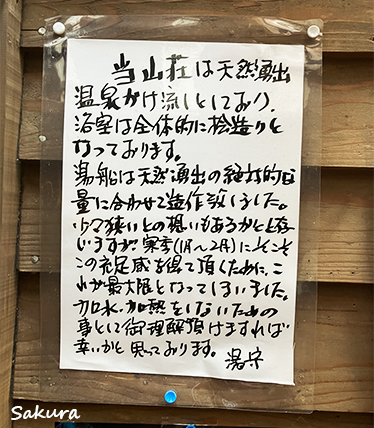 当山荘は天然湧出
温泉かけ流しとしており、
浴室は全体的に桧造りと
なっております。
湯船は天然湧出の総対的な
量に合わせて造作致しました。
少々狭いとの想いもあるかと存
じますが、寒季(1月〜2月)にそこそ
この充足感を得て頂くために、こ
れが最大限となってしまいました。
加水、加熱をしないための
事として御理解頂けますれば
幸いかと思っております。 湯守
Sakura